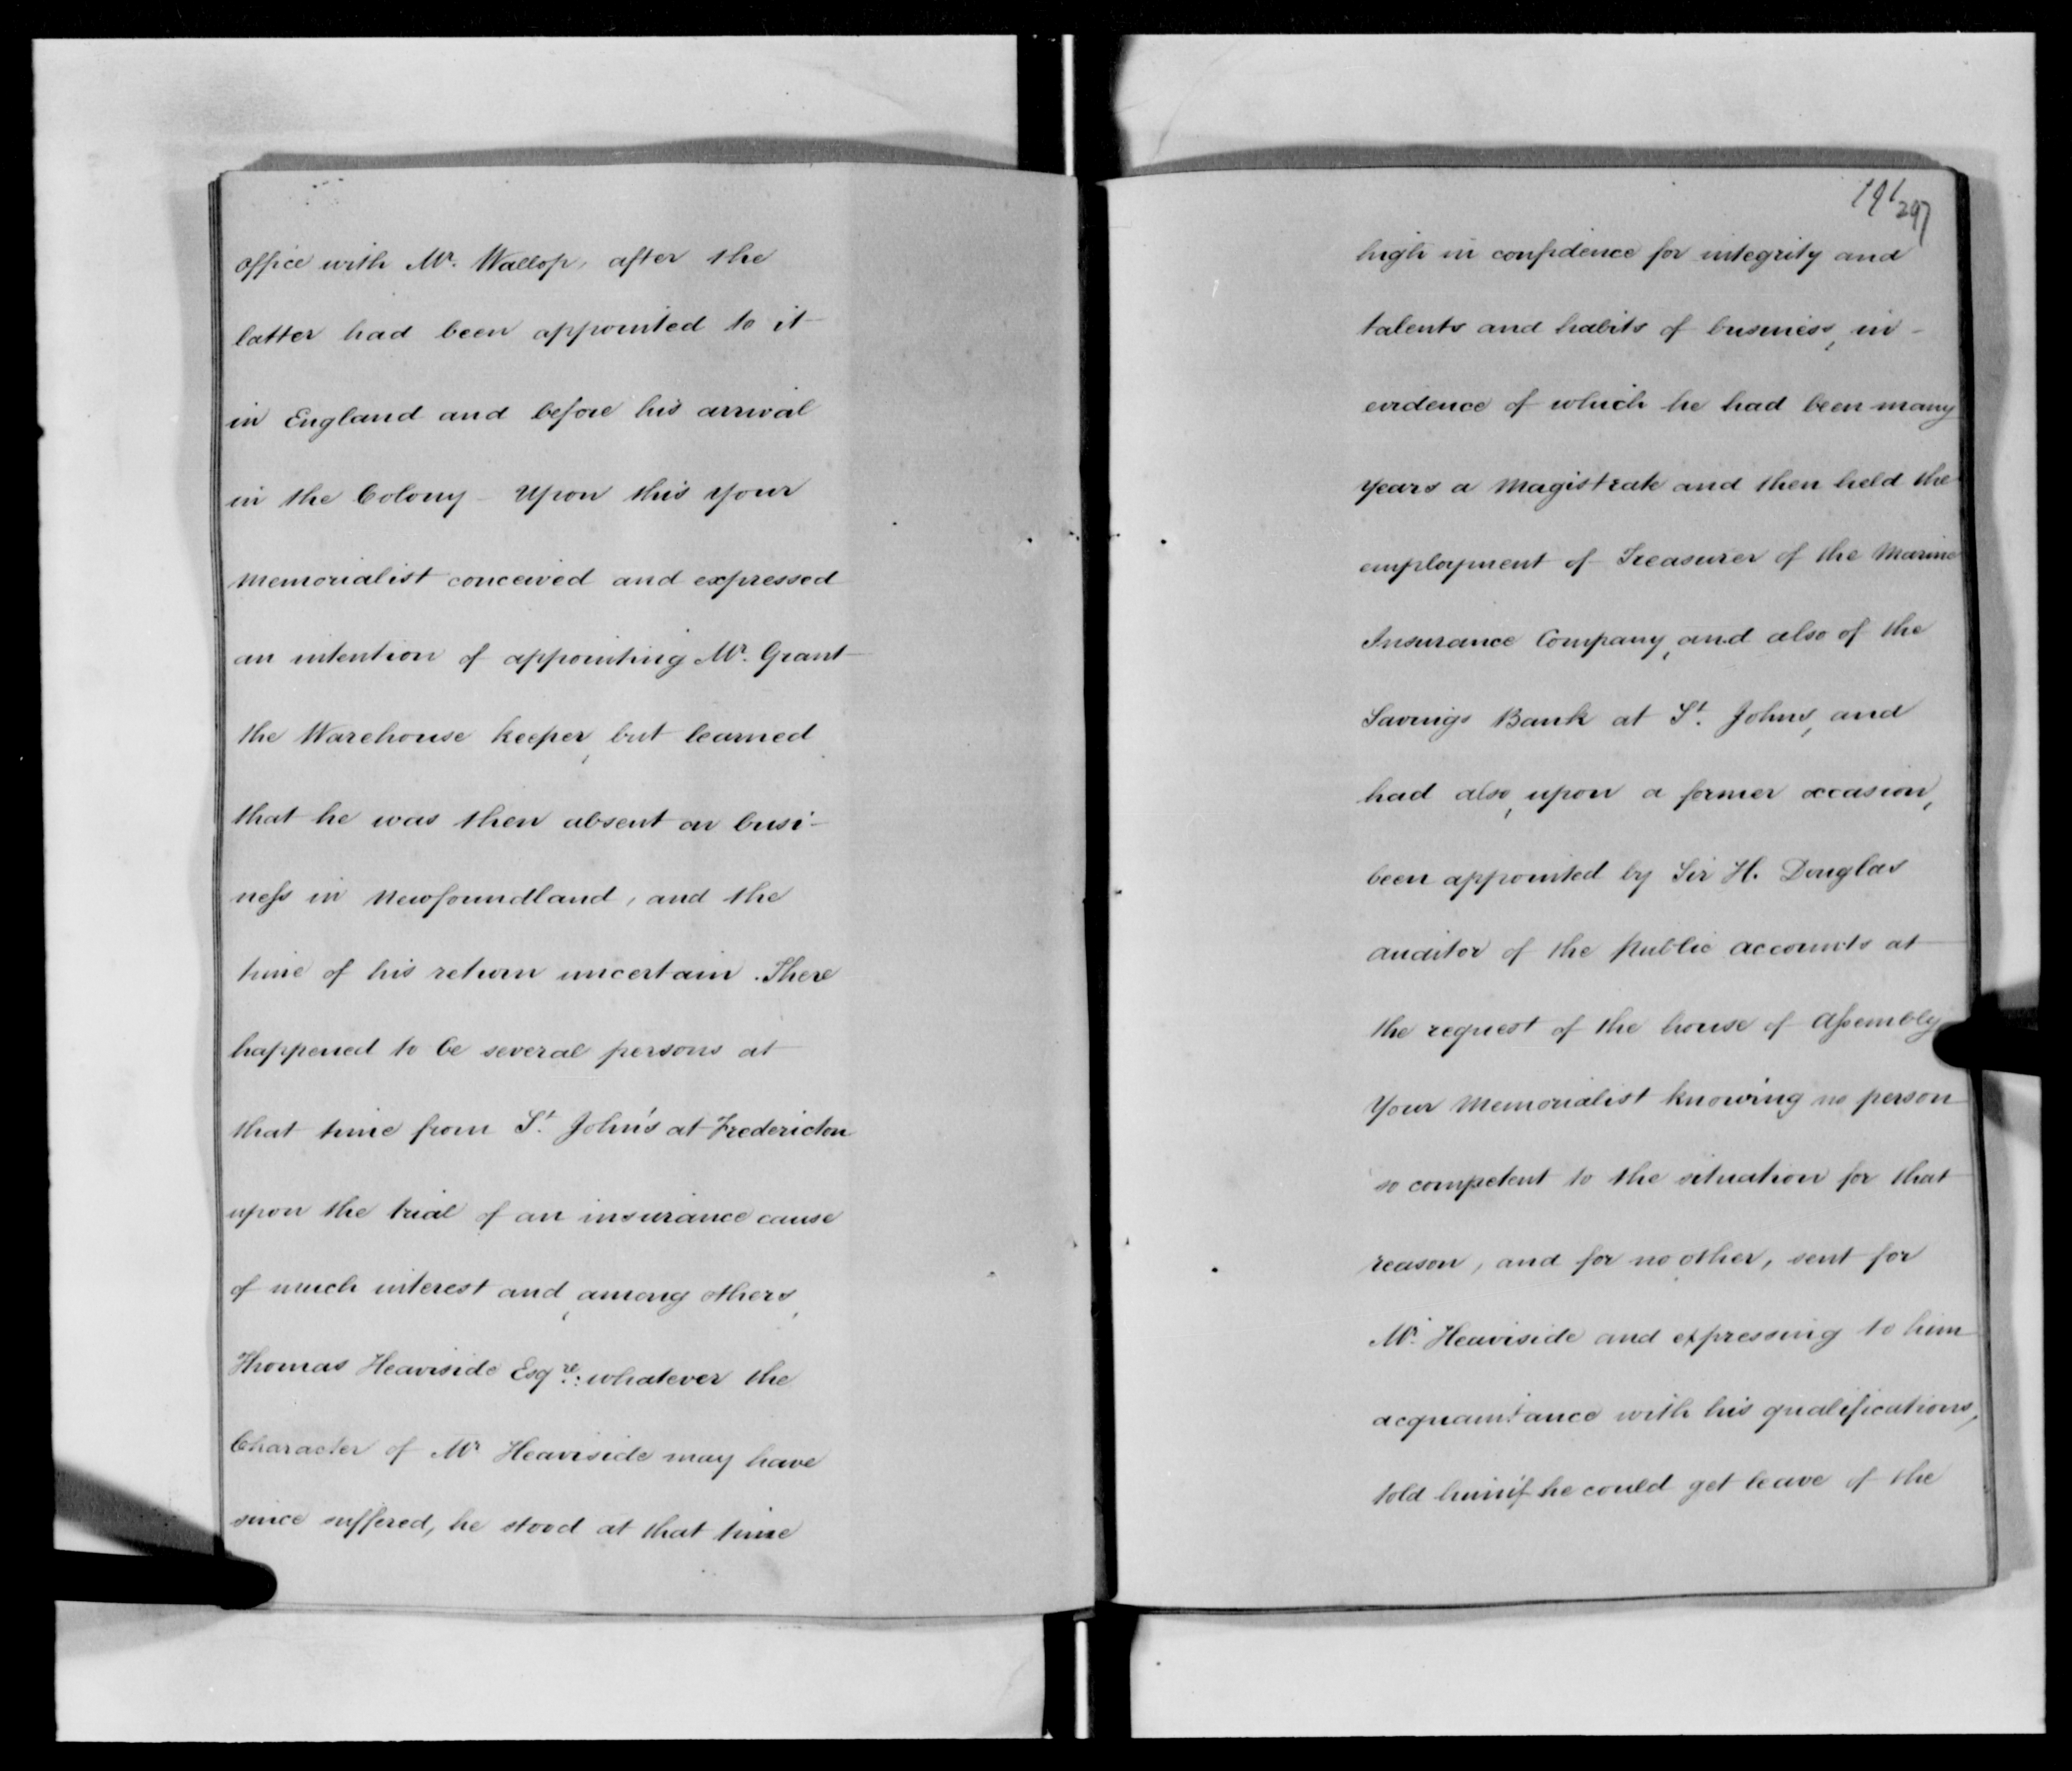 office with Mr. Wallop, after the
latter had been appointed to it
in England and before his arrival
in the Colony - Upon this your
memorialist conceived and expressed
an intention of appointing Mr. Grant
the Warehouse keeper, but learned
that he was then absent on busi-
ness in Newfoundland, and the
time of his return uncertain. There
happened to be several persons at
that time from St. John's at Fredericton
upon the trial of an insurance cause
of much interest and, among others,
Thomas Heaviside Esqre: whatever the
Character of Mr Heaviside may have
since suffered, he stood at that time
191 297
high in confidence for integrity and
talents and habits of business, in
evidence of which he had been many
years a Magistrate and then held the
employment of Treasurer of the Marine
Insurance Company, and also of the
Savings Bank at St. Johns, and
had also, upon a former occasion,
been appointed by Sir H. Douglas
auditor of the Public accounts at
the request of the house of Assembly
Your Memorialist knowing no person
so competent to the situation for that
reason, and for no other, sent for
Mr. Heaviside and expressing to him
acquaintance with his qualifications,
told him if he could get leave of the